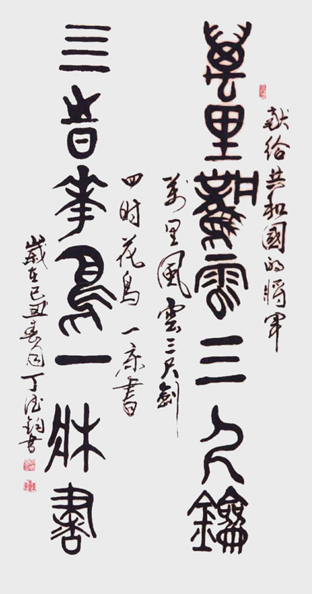 献给共和國的將軍
萬里風雲三尺劍
萬里風雲三尺劍
四时花鳥一床書
亖時華鳥一牀書
歲在己丑春月丁書